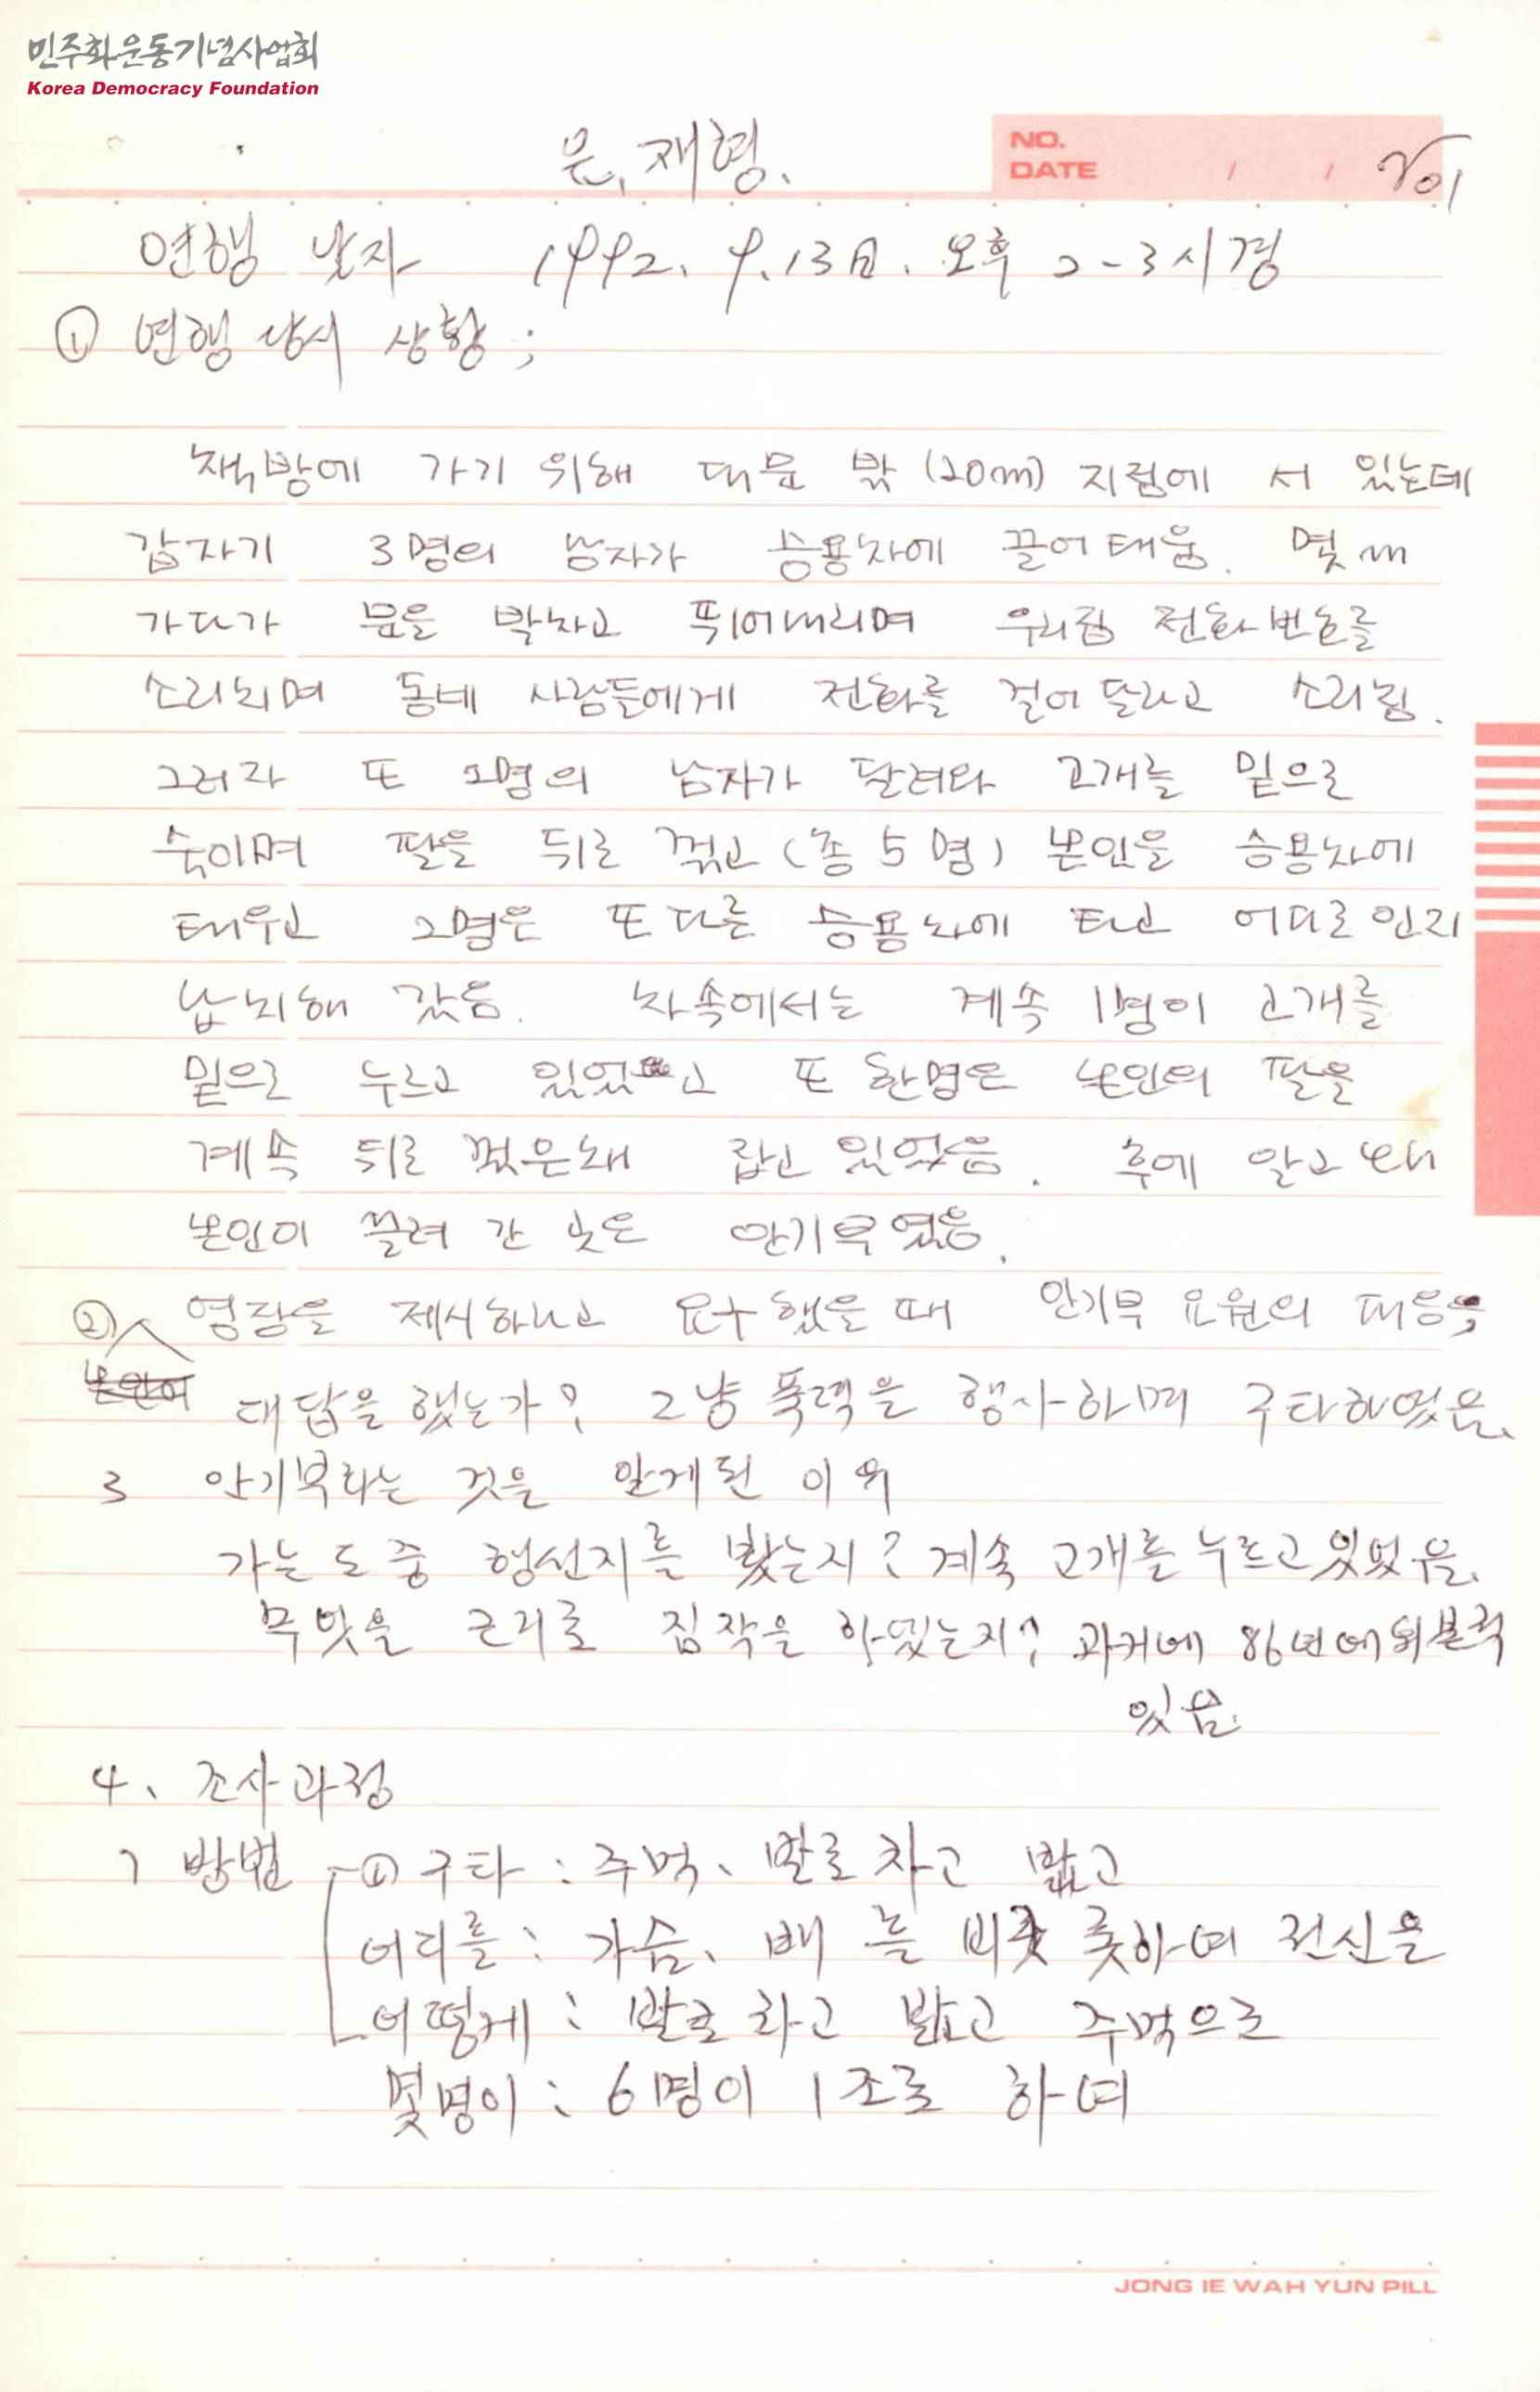 민주화운동기념사업회
Korea Democracy Foundation
은, 재형.
NO.
DATE / /
연행 날자 1992. 9. 13日. 오후 2-3시경
① 연행 당시 상황;
책방에 가기 위해 대문 밖 (20m) 지점에 서 있는데
갑자기 3명의 남자가 승용차에 끌어 태움. 몇 m
가다가 문을 박차고 뛰어내리며 우리집 전화번호를
소리치며 동네 사람들에게 전화를 걸어 달라고 소리침.
그러자 또 2명의 남자가 달려와 고개를 밑으로
숙이며 팔을 뒤로 꺾고 (총 5명) 본인을 승용차에
태우고 2명은 또 다른 승용차에 타고 어디로 인지
납치해 갔음. 차속에서는 계속 1명이 고개를
밑으로 누르고 있었고 또 한명은 본인의 팔을
계속 뒤로 꺾은채 잡고 있었음. 후에 알고 보니
본인이 끌려 간 곳은 안기부였음.
② 영장을 제시하라고 요구했을 때 안기부 요원의 대응;
본인이 대답을 했는가? 그냥 폭력을 행사하며 구타하였음.
3 안기부라는 것을 알게된 이유
가는 도중 행선지를 봤는지? 계속 고개를 누르고 있었음.
무엇을 근거로 짐작을 하였는지? 과거에 86년에
있음.
4、 조사과정
ㄱ 방법 ① 구타 : 주먹、발로 차고 밟고
어디를 : 가슴、배 를 비롯하여 전신을
어떻게 : 발로 차고 밟고 주먹으로
몇명이 : 6명이 1조로 하여
JONG IE WAH YUN PILL